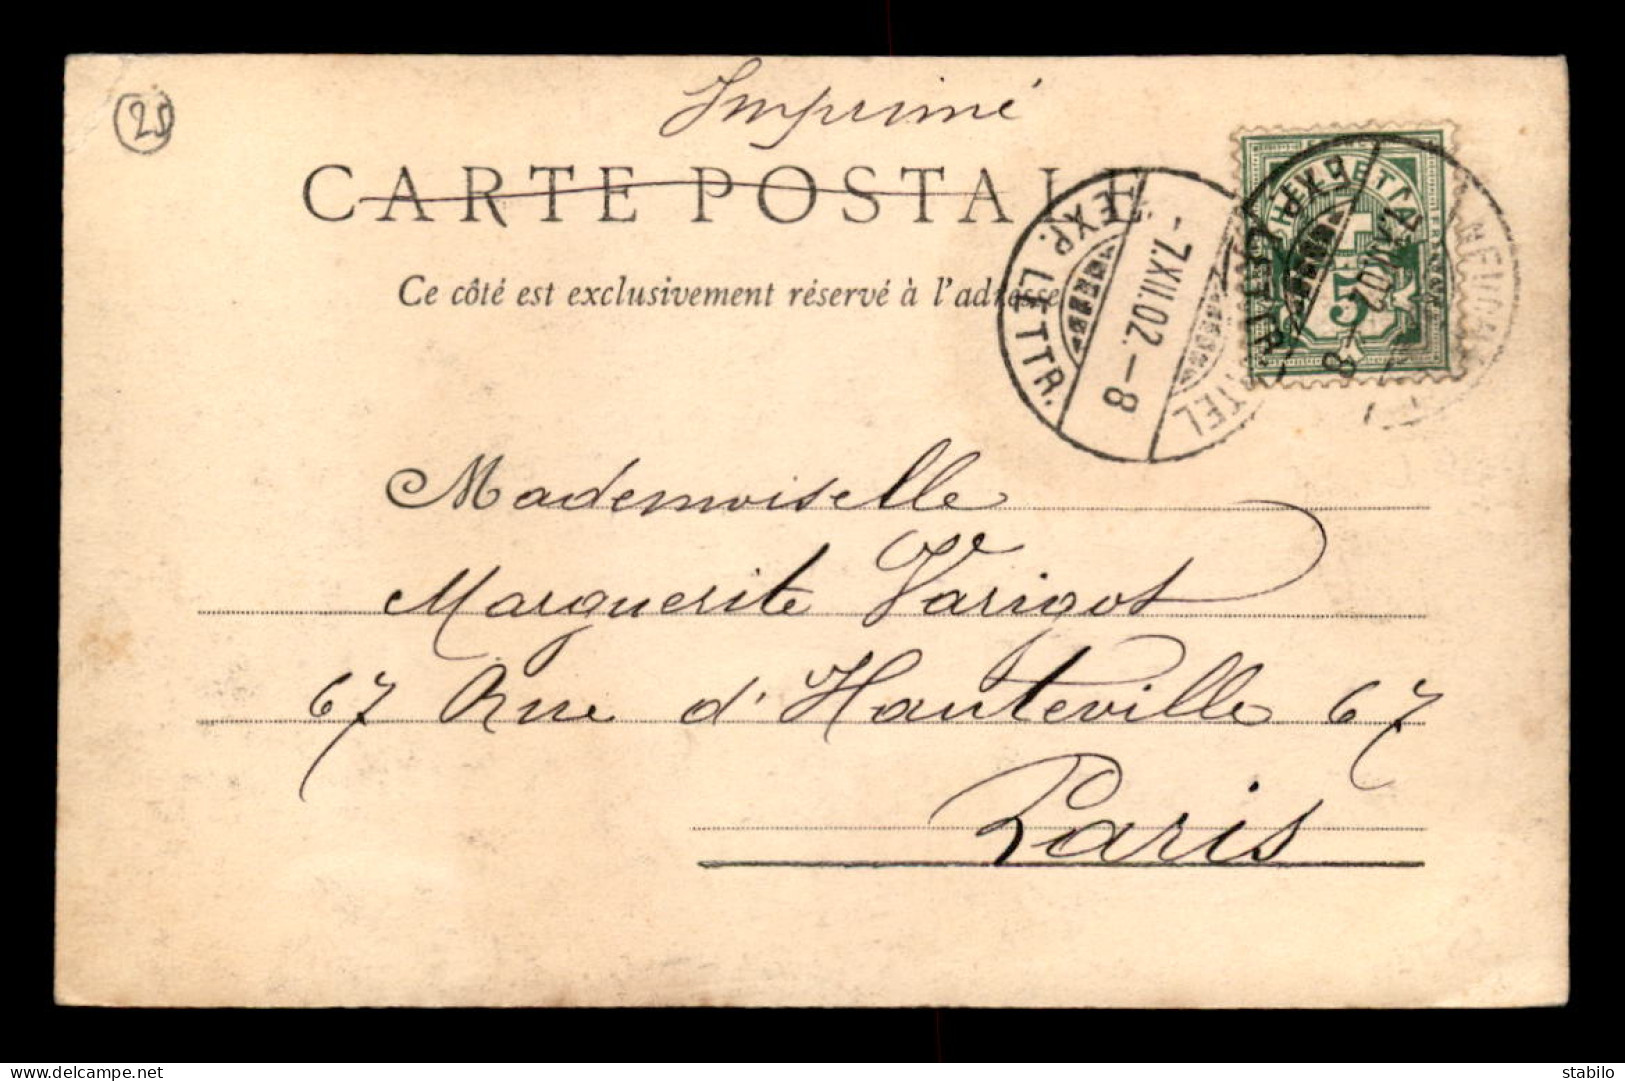 25
Imprimé
CARTE POSTALE
Ce côté est exclusivement réservé à l'adresse
HELVETIA
5
EXP. LETTR.
-7.XII.02.-8
Mademoiselle
Marguerite Varigot
67 Rue d'Hauteville 67
Paris
delcampe.net
stabilo